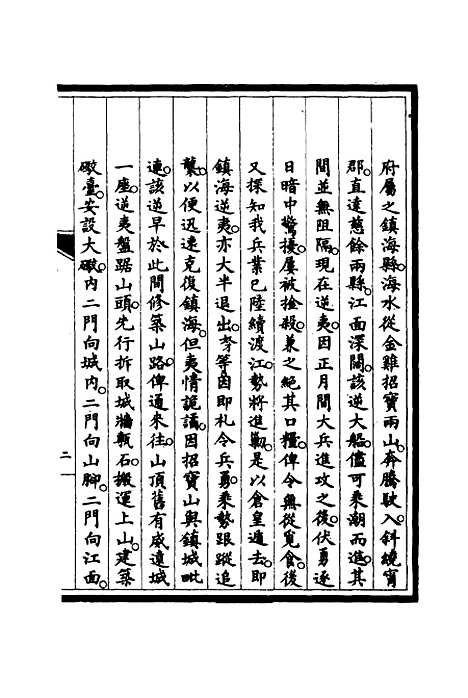 府屬之鎮海縣海水從金雞招寶兩山奔騰駛入斜繞甯
郡直達慈餘兩縣江面深闊該逆大船儘可乘潮而進其
間並無阻隔現在逆夷因正月間大兵進攻之後伏勇逐
日暗中驚擾屢被搶殺兼之絕其口糧俾令無從覓食後
又探知我兵業已陸續渡江勢將進勦是以倉皇遁去即
鎮海逆夷亦大半退出考等因即札令兵勇乘勢跟蹤追
襲以便迅速克復鎮海但夷情詭譎因招寶山與鎮城毗
連該逆早於此間修築山路俾通來往山頂舊有威遠城
一座逆夷盤踞山頭先行拆取城牆甎石搬運上山建築
礮臺安設大礮內二門向城內二門向山腳二門向江面
二